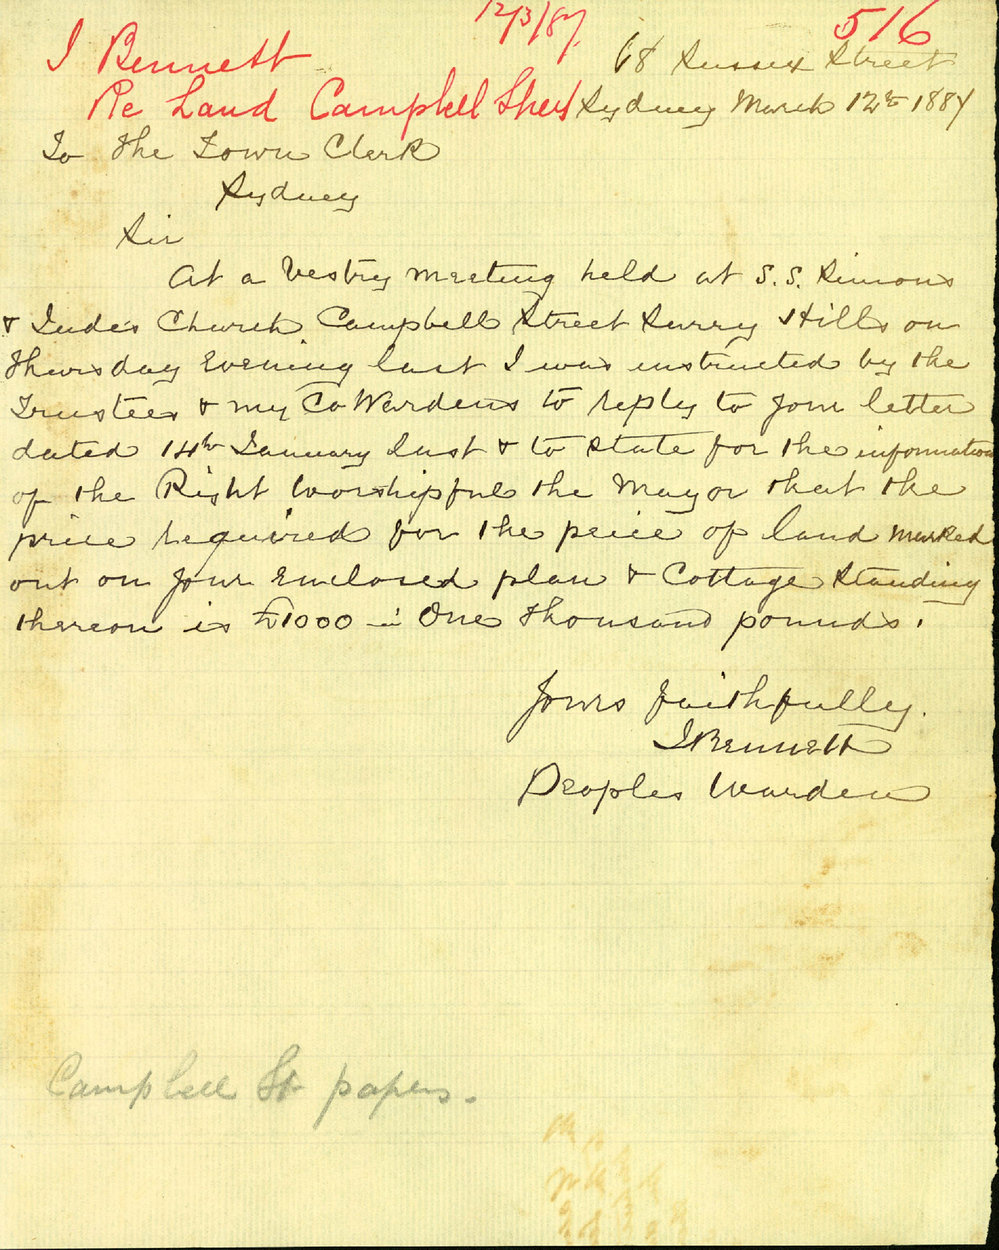 12/3/87.
516
I Bennett
68 Sussex Street
Re Land Campbell Street
Sydney March 12th 1887
To The Town Clerk
Sydney
Sir
At a Vestry meeting held at S.S. Simons
& Judes Church Campbell Street Surry Hills on
Thursday Evening last I was instructed by the
Trustees & my CoWardens to reply to your letter
dated 14th January last & to state for the information
of the Right Worshipful the Mayor that the
price required for the peice of land marked
out on your Enclosed plan & Cottage Standing
thereon is £1000 — One thousand pounds.
Yours faithfully.
I Bennett
Peoples Warden
Campbell St papers.